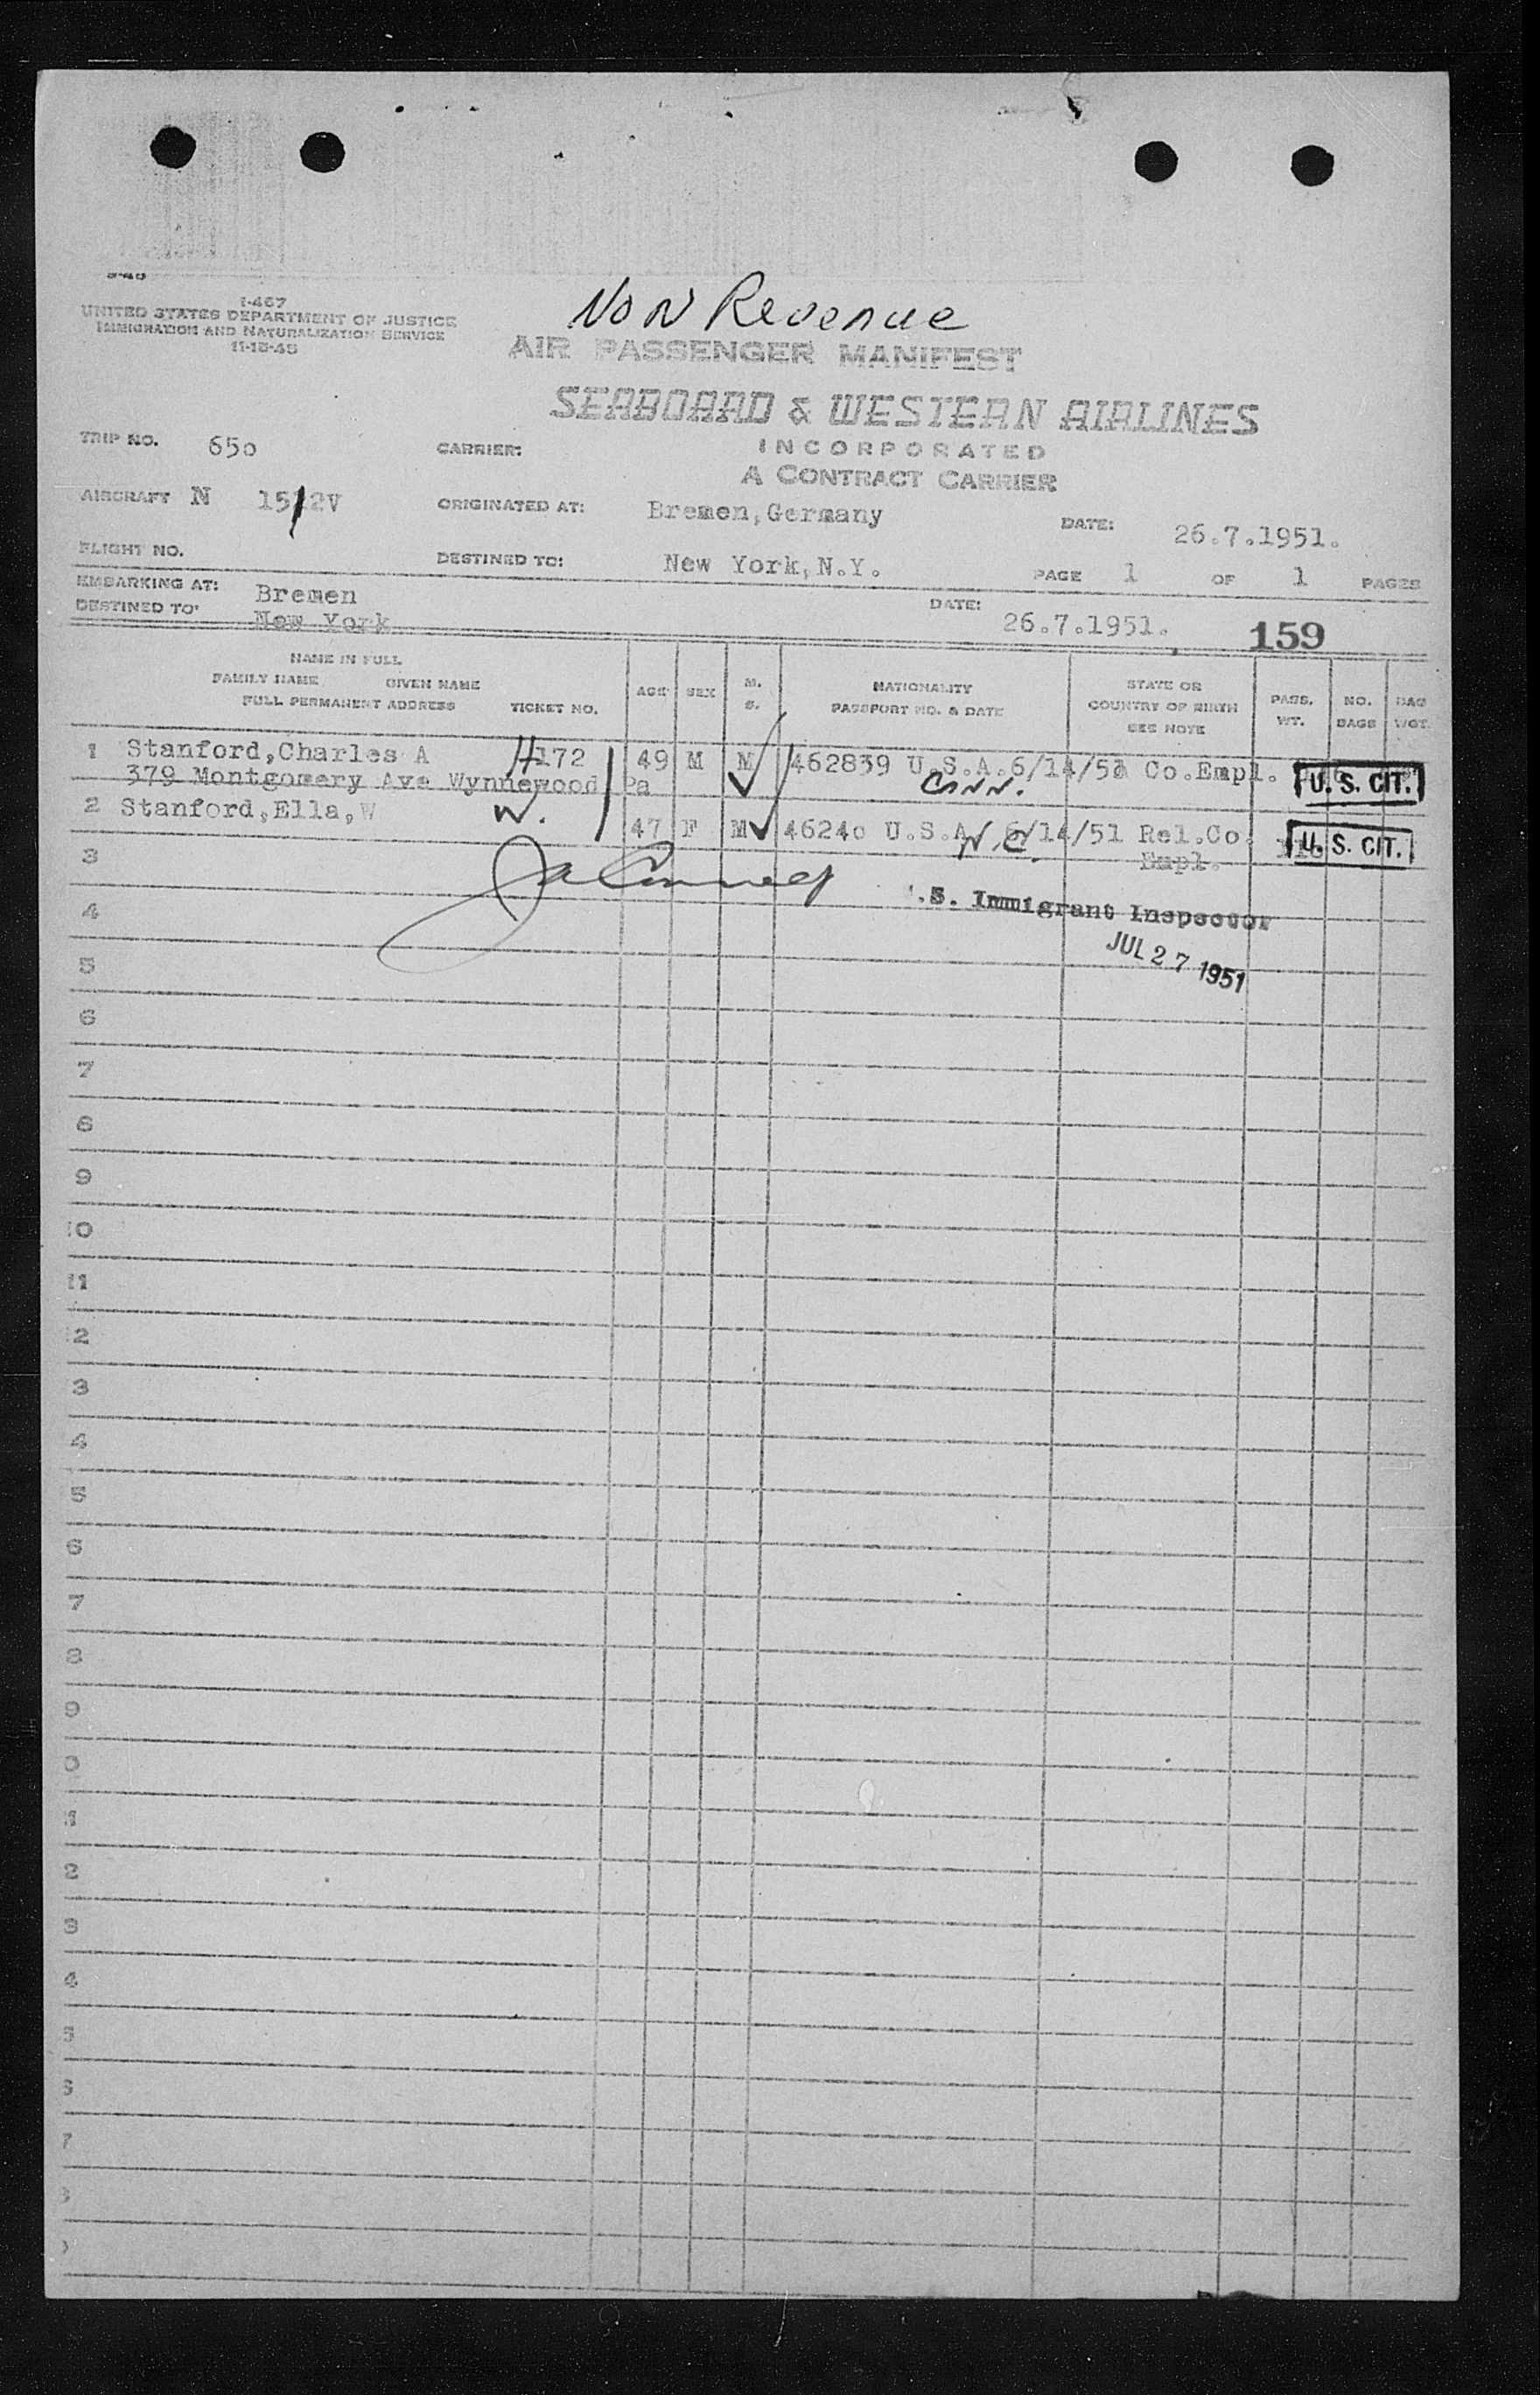 I-467
UNITED STATES DEPARTMENT OF JUSTICE
IMMIGRATION AND NATURALIZATION SERVICE
11-15-45
Non Revenue
AIR PASSENGER MANIFEST
SEABOARD & WESTERN AIRLINES
INCORPORATED
A CONTRACT CARRIER
TRIP NO. 65o CARRIER:
AIRCRAFT N 1512V ORIGINATED AT: Bremen,Germany DATE: 26.7.1951.
FLIGHT NO. DESTINED TO: New York,N.Y. PAGE 1 OF 1 PAGES
EMBARKING AT: Bremen
DESTINED TO: New York DATE: 26.7.1951. 159
NAME IN FULL
FAMILY NAME GIVEN NAME
FULL PERMANENT ADDRESS TICKET NO. AGE SEX M. S. NATIONALITY PASSPORT NO. & DATE STATE OR COUNTRY OF BIRTH SEE NOTE PASS. WT. NO. BAGS BAG WGT.
1 Stanford,Charles A H 172 49 M M 462839 U.S.A.6/14/51 Co.Empl. U.S. CIT.
379 Montgomery Ave Wynnewood Pa Conn.
2 Stanford,Ella,W W. 47 F M 4624o U.S.A. 6/14/51 Rel.Co. U.S. CIT.
N.C. Empl.
3
.S. Immigrant Inspector
4
JUL 27 1951
5
6
7
8
9
10
11
2
3
4
5
6
7
8
9
0
1
2
3
4
5
6
7